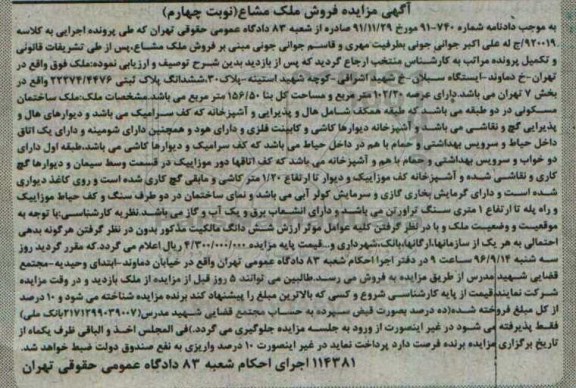 آگهی مزایده فروش ملک مشاع(نوبت چهارم)
به موجب دادنامه شماره ۷۴۰-۹۱ مورخ ۹۱/۱۱/۲۹ صادره از شعبه ۸۳ دادگاه عمومی حقوقی تهران که طی پرونده اجرایی به کلاسه
۹۲۰۰۱۹/ج له علی اکبر جوانی جونی بطرفیت مهری و قاسم جوانی جونی مبنی بر فروش ملک مشاع،پس از طی تشریفات قانونی
و تکمیل پرونده مراتب به کارشناس منتخب ارجاع گردید که پس از بازدید بدین شرح توصیف و ارزیابی نموده:ملک فوق واقع در
تهران-خ دماوند-ایستگاه سبلان-خ شهید اشراقی-کوچه شهید استینه-پلاک۳۰،ششدانگ پلاک ثبتی ۲۲۳۷۴/۴۴۷۶ واقع در
بخش ۷ تهران می باشد.دارای عرصه ۱۰۲/۲۰ متر مربع و مساحت کل بنا ۱۵۶/۵۰ متر مربع می باشد.مشخصات ملک:ملک ساختمان
مسکونی در دو طبقه می باشد.که طبقه همکف شامل هال و پذیرایی و آشپزخانه که کف سرامیک می باشد و دیوارهای هال و
پذیرایی گچ و نقاشی می باشد و آشپزخانه دیوارها کاشی و کابینت فلزی و دارای هود و همچنین دارای شومینه و دارای یک اتاق
داخل حیاط و سرویس بهداشتی و حمام با هم در داخل حیاط می باشد که کف سرامیک و دیوارها کاشی می باشد،طبقه اول دارای
دو خواب و سرویس بهداشتی و حمام با هم و آشپزخانه می باشد که کف اتاقها دور موزاییک در قسمت وسط سیمان و دیوارها گچ
کاری و نقاشی شده و آشپزخانه کف موزاییک و دیوار تا ارتفاع ۱/۲۰ متر کاشی و مابقی گچ کاری شده است و روی کاغذ دیواری
شده است و دارای گرمایش بخاری گازی و سرمایش کولر آبی می باشد و نمای ساختمان در دو طرف سنگ و کف حیاط موزاییک
و راه پله تا ارتفاع ۱ متری سنگ تراورتن می باشد و دارای انشعاب برق و یک آب و گاز می باشد.نظریه کارشناسی:با توجه به
موقعیت و وضعیت ملک و با در نظر گرفتن کلیه عوامل موثر ارزش شش دانگ مالکیت مذکور بدون در نظر گرفتن هرگونه بدهی
احتمالی به هر یک از سازمانها،ارگانها،بانک،شهرداری و...قیمت پایه مزایده ۴/۳۰۰/۰۰۰/۰۰۰ ریال اعلام می گردد.که مقرر گردید روز
سه شنبه ۹۶/۹/۱۴ ساعت ۹ در دفتر اجرا احکام شعبه ۸۳ دادگاه عمومی تهران واقع در خیابان دماوند-ابتدای وحیدیه-مجتمع
قضایی شهید مدرس از طریق مزایده به فروش می رسد.طالبین می توانند ۵ روز قبل از مزایده از ملک بازدید و در وقت مزایده
شرکت نمایند.قیمت از پایه کارشناسی شروع و کسی که بالاترین مبلغ را پیشنهاد کند برنده مزایده شناخته می شود و ۱۰ درصد
از کل مبلغ فروخته شده(ده درصد بصورت قبض سپرده به حساب مجتمع قضایی شهید مدرس(۲۱۷۱۲۹۹۰۳۹۰۰۷بانک ملی)
فقط پذیرفته می شود در غیر اینصورت از ورود به جلسه مزایده جلوگیری می گردد.)فی المجلس اخذ و الباقی ظرف یکماه از
تاریخ برگزاری مزایده برنده فرصت دارد پرداخت نماید در غیر اینصورت ۱۰ درصد واریزی به نفع صندوق دولت ضبط خواهد شد.
۱۱۴۳۸۱ اجرای احکام شعبه ۸۳ دادگاه عمومی حقوقی تهران